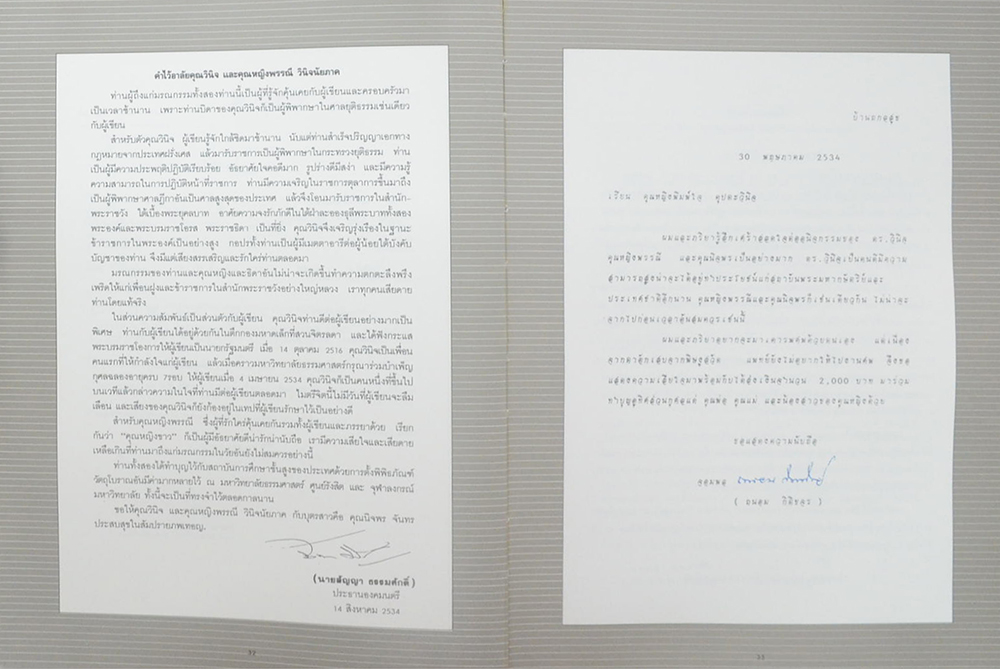 คำไว้อาลัยคุณวินิจ และคุณหญิงพรรณี วินิจนัยภาค
ท่านผู้ถึงแก่มรณกรรมทั้งสองท่านนี้เป็นผู้ที่รู้จักคุ้นเคยกับผู้เขียนและครอบครัวมา
เป็นเวลาช้านาน เพราะท่านบิดาของคุณวินิจก็เป็นผู้พิพากษาในศาลยุติธรรมเช่นเดียว
กับผู้เขียน
สำหรับตัวคุณวินิจ ผู้เขียนรู้จักใกล้ชิดมาช้านาน นับแต่ท่านสำเร็จปริญญาเอกทาง
กฎหมายจากประเทศฝรั่งเศส แล้วมารับราชการเป็นผู้พิพากษาในกระทรวงยุติธรรม ท่าน
เป็นผู้มีความประพฤติปฏิบัติเรียบร้อย อัธยาศัยใจคอดีมาก รูปร่างดีมีสง่า และมีความรู้
ความสามารถในการปฏิบัติหน้าที่ราชการ ท่านมีความเจริญในราชการตุลาการขึ้นมาถึง
เป็นผู้พิพากษาศาลฎีกาอันเป็นศาลสูงสุดของประเทศ แล้วจึงโอนมารับราชการในสำนัก-
พระราชวัง ได้เบื้องพระยุคลบาท อาศัยความจงรักภักดีในใต้ฝ่าละอองธุลีพระบาททั้งสอง
พระองค์และพระบรมราชโอรส พระราชธิดา เป็นที่ยิ่ง คุณวินิจจึงเจริญรุ่งเรืองในฐานะ
ข้าราชการในพระองค์เป็นอย่างสูง กอปรทั้งท่านเป็นผู้มีเมตตาอารีต่อผู้น้อยใต้บังคับ
บัญชาของท่าน จึงมีแต่เสียงสรรเสริญและรักใคร่ท่านตลอดมา
มรณกรรมของท่านและคุณหญิงและธิดาอันไม่น่าจะเกิดขึ้นทำความตกตะลึงพรึง
เพริดให้แก่เพื่อนฝูงและข้าราชการในสำนักพระราชวังอย่างใหญ่หลวง เราทุกคนเสียดาย
ท่านโดยแท้จริง
ในส่วนความสัมพันธ์เป็นส่วนตัวกับผู้เขียน คุณวินิจท่านดีต่อผู้เขียนอย่างมากเป็น
พิเศษ ท่านกับผู้เขียนได้อยู่ด้วยกันในตึกกองมหาดเล็กที่สวนจิตรลดา และได้ฟังกระแส
พระบรมราชโองการให้ผู้เขียนเป็นนายกรัฐมนตรี เมื่อ 14 ตุลาคม 2516 คุณวินิจเป็นเพื่อน
คนแรกที่ให้กำลังใจแก่ผู้เขียน แล้วเมื่อคราวมหาวิทยาลัยธรรมศาสตร์กรุณาร่วมบำเพ็ญ
กุศลฉลองอายุครบ 7รอบ ให้ผู้เขียนเมื่อ 4 เมษายน 2534 คุณวินิจก็เป็นคนหนึ่งที่ขึ้นไป
บนเวทีแล้วกล่าวความในใจที่ท่านมีต่อผู้เขียนตลอดมา ไมตรีจิตนี้ไม่มีวันที่ผู้เขียนจะลืม
เลือน และเสียงของคุณวินิจก็ยังก้องอยู่ในเทปที่ผู้เขียนรักษาไว้เป็นอย่างดี
สำหรับคุณหญิงพรรณี ซึ่งผู้ที่รักใคร่คุ้นเคยกันรวมทั้งผู้เขียนและภรรยาด้วย เรียก
กันว่า "คุณหญิงขาว" ก็เป็นผู้มีอัธยาศัยดีน่ารักน่านับถือ เรามีความเสียใจและเสียดาย
เหลือเกินที่ท่านมาถึงแก่มรณกรรมในวัยอันยังไม่สมควรอย่างนี้
ท่านทั้งสองได้ทำบุญไว้กับสถาบันการศึกษาชั้นสูงของประเทศด้วยการตั้งพิพิธภัณฑ์
วัตถุโบราณอันมีค่ามากหลายไว้ ณ มหาวิทยาลัยธรรมศาสตร์ ศูนย์รังสิต และ จุฬาลงกรณ์
มหาวิทยาลัย ทั้งนี้จะเป็นที่ทรงจำไว้ตลอดกาลนาน
ขอให้คุณวินิจ และคุณหญิงพรรณี วินิจนัยภาค กับบุตรสาวคือ คุณนิจพร จันทร
ประสบสุขในสัมปรายภพเทอญ.
(นายสัญญา ธรรมศักดิ์)
ประธานองคมนตรี
14 สิงหาคม 2534
32
บ้านถกลสุข
30 พฤษภาคม 2534
เรียน คุณหญิงพิมพ์ใจ คุปตะวินิจ
ผมและภริยารู้สึกเศร้าสลดใจต่อมรณกรรมของ ดร.วินิจ
คุณหญิงพรรณี และคุณนิจพรเป็นอย่างมาก ดร.วินิจเป็นคนดีมีความ
สามารถสูงน่าจะได้อยู่ทำประโยชน์แก่สถาบันพระมหากษัตริย์และ
ประเทศชาติอีกนาน คุณหญิงพรรณีและคุณนิจพรก็เช่นเดียวกัน ไม่น่าจะ
จากไปก่อนเวลาอันสมควรเช่นนี้
ผมและภริยาอยากจะมาเคารพศพด้วยตนเอง แต่เนื่อง
แพทย์ยังไม่อยากให้ไปงานศพ จึงขอ
แสดงความเสียใจมาพร้อมกับได้ส่งเงินจำนวน 2,000 บาท มาร่วม
ทำบุญอุทิศส่วนกุศลแด่ คุณพ่อ คุณแม่ และน้องสาวของคุณหญิงด้วย
ขอแสดงความนับถือ
จอมพล
( ถนอม กิตติขจร )
33